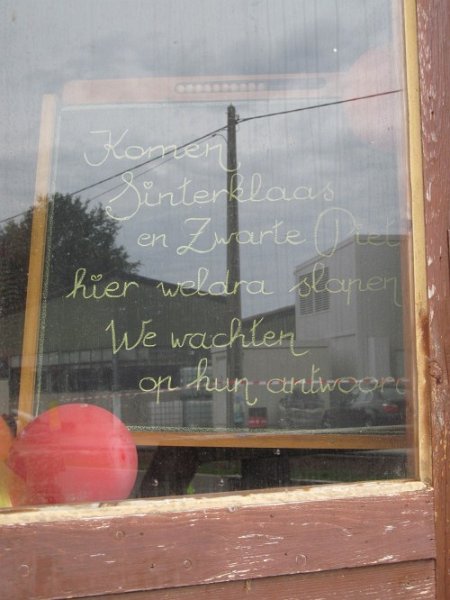 Komen
Sinterklaas
en Zwarte Piet
hier weldra slapen
We wachten
op hun antwoord